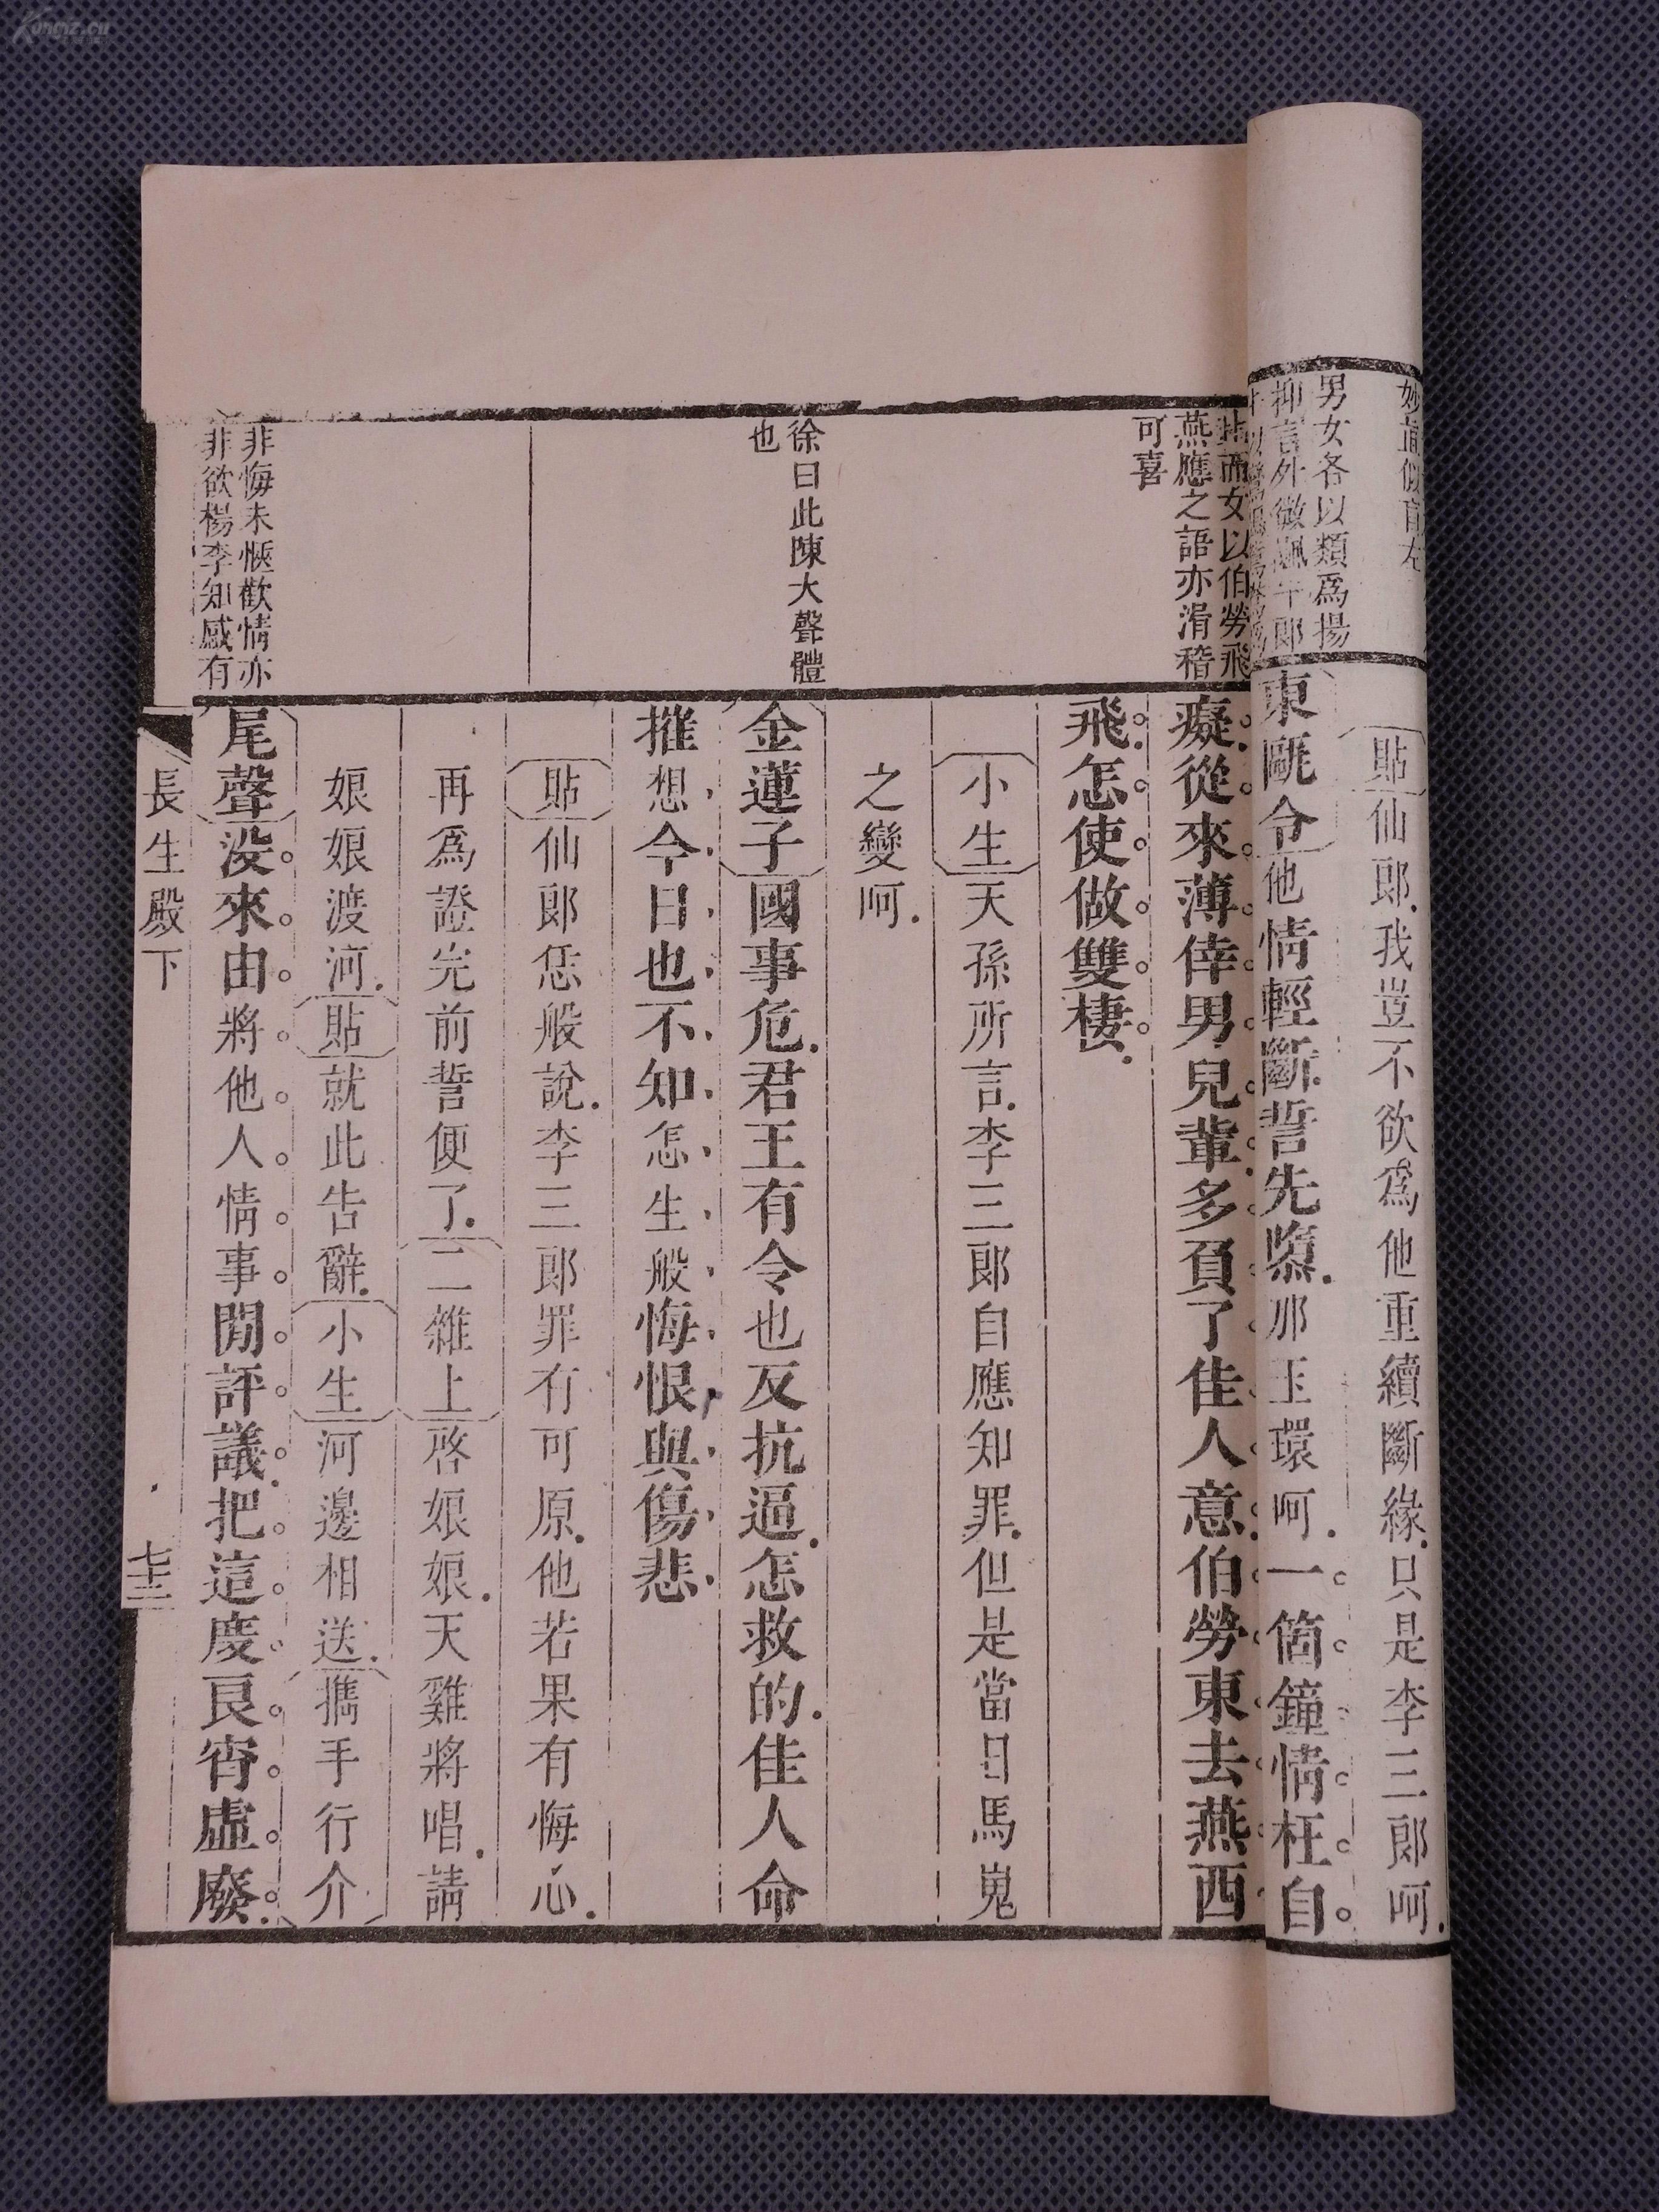 妙
男女各以類爲揚
抑言外微諷牛郎
女以伯勞飛
燕應之語亦滑稽
可喜
徐曰此陳大聲體
也
非悔未愜歡情亦
非欲楊李知感有
貼仙郎.我豈不欲爲他重續斷緣.只是李三郎呵.
東甌令他情輕斷.誓先隳.那玉環呵.一箇鐘情枉自
癡.從來薄倖男兒輩.多負了佳人意.伯勞東去燕西
飛.怎使做雙棲.
小生天孫所言.李三郎自應知罪.但是當日馬嵬
之變呵.
金蓮子國事危.君王有令也反抗逼.怎救的.佳人命
摧想今日也不知怎生般悔恨與傷悲
貼仙郎恁般說.李三郎罪有可原.他若果有悔心.
再爲證完前誓便了.二雜上啓娘娘.天雞將唱.請
娘娘渡河.貼就此告辭.小生河邊相送.攜手行介
尾聲没來由將他人情事閒評議.把這度良宵虛廢.
長生殿下
七十三
Kongfz.cn